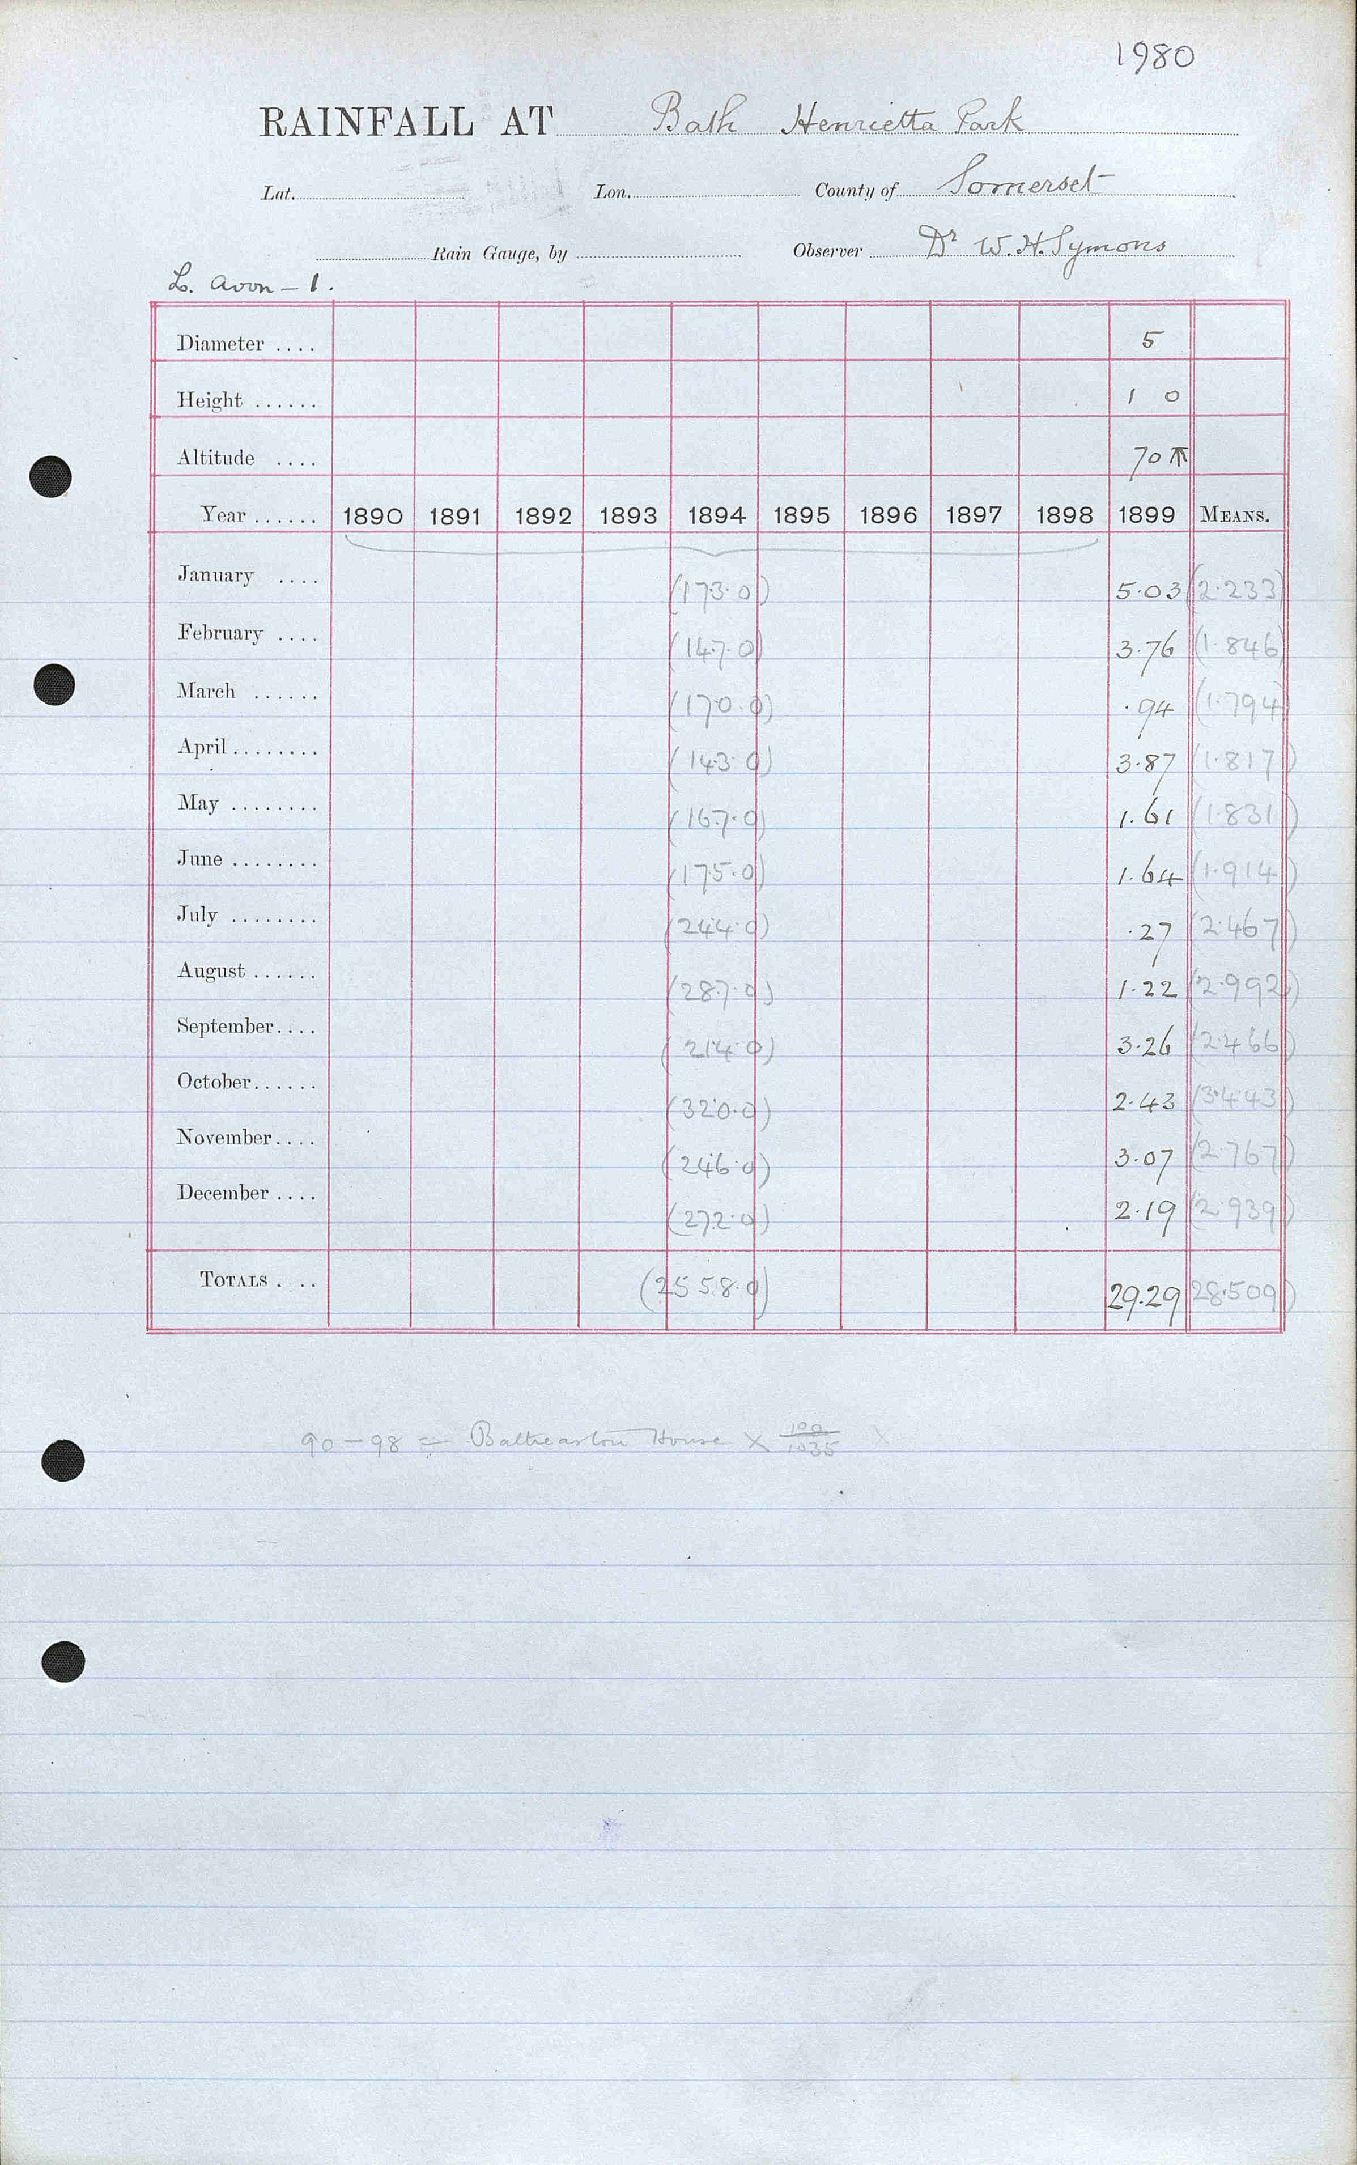 1980
RAINFALL AT Bath Henrietta Park
Lat. Lon. County of Somerset
Rain Gauge, by Observer Dr W. H. Symons
L. Avon - 1.
Diameter .... 5
Height ...... 1 0
Altitude .... 70
Year ...... 1890 1891 1892 1893 1894 1895 1896 1897 1898 1899 MEANS.
January .... (173.0) 5.03 (2.233)
February .... (147.0) 3.76 (1.846)
March ...... (170.0) .94 (1.794)
April ........ (143.0) 3.87 (1.817)
May ........ (167.0) 1.61 (1.831)
June ........ (175.0) 1.64 (1.914)
July ........ (244.0) .27 (2.467)
August ...... (287.0) 1.22 (2.992)
September.... (214.0) 3.26 (2.466)
October...... (320.0) 2.43 (3.443)
November.... (246.0) 3.07 (2.767)
December .... (272.0) 2.19 (2.939)
TOTALS . .. (2558.0) 29.29 (28.509)
90 - 98 = Batheaston House × 100/1035